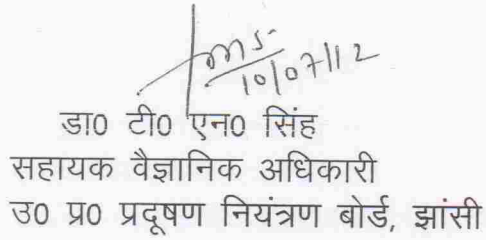 10/07/12
डा0 टी0 एन0 सिंह
सहायक वैज्ञानिक अधिकारी
उ0 प्र0 प्रदूषण नियंत्रण बोर्ड, झांसी